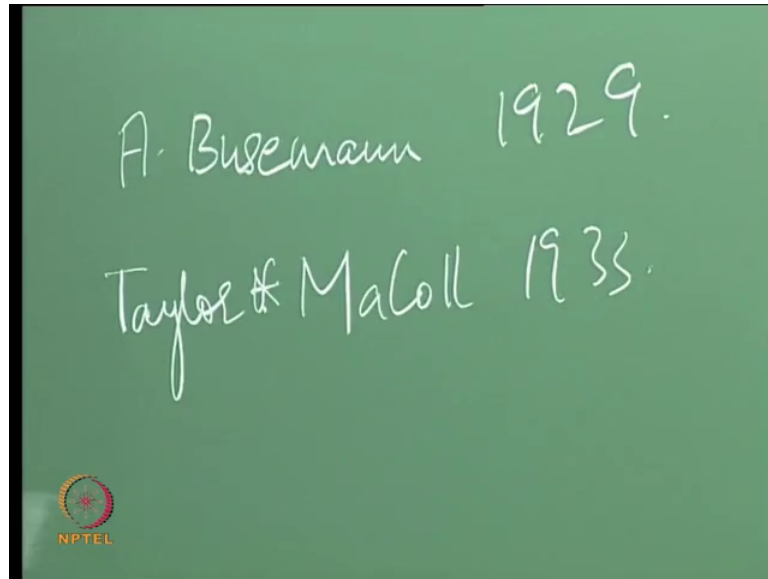 A. Busemann 1929.
Taylor & MaColl 1933.
NPTEL